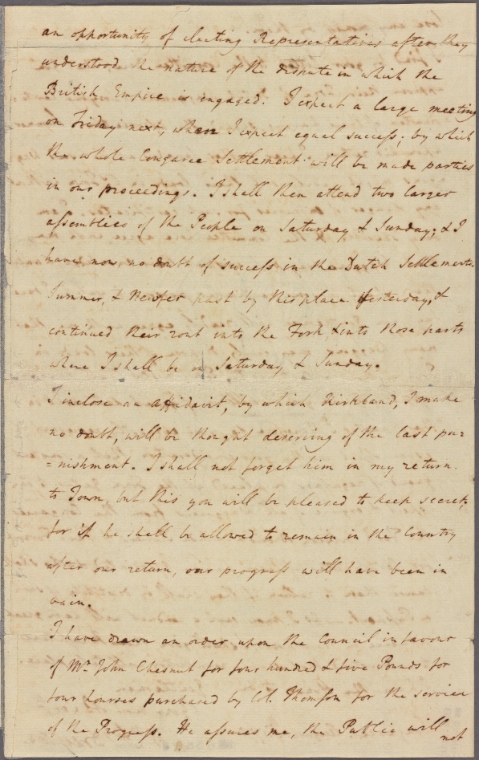 an opportunity of electing Representatives after they
understood the nature of the dispute in which the
British Empire is engaged. I expect a large meeting
on Friday next, when I expect equal success; by which
the whole Congaree Settlement will be made parties
in our proceedings. I shall then attend two larger
assemblies of the People on Saturday & Sunday, & I
have now no doubt of success in the Dutch Settlements.
Summers, & past by this place Yesterday, &
continued their rout into the Fork & into those parts
where I shall be on Saturday & Sunday.
I inclose an affidavit, by which Kirkland, I make
no doubt, will be thought deserving of the last pu=
=nishment. I shall not forget him in my return
to Town, but this you will be pleased to keep secret,
for if he shall be allowed to remain in the Country
after our return, our progress will have been in
vain.
I have drawn an order upon the Council in favour
of Mr. John Chesnut for four hundred & five Pounds for
four horses purchased by Col. Thomson for the service
of the Progress. He assures me, the Public will
not